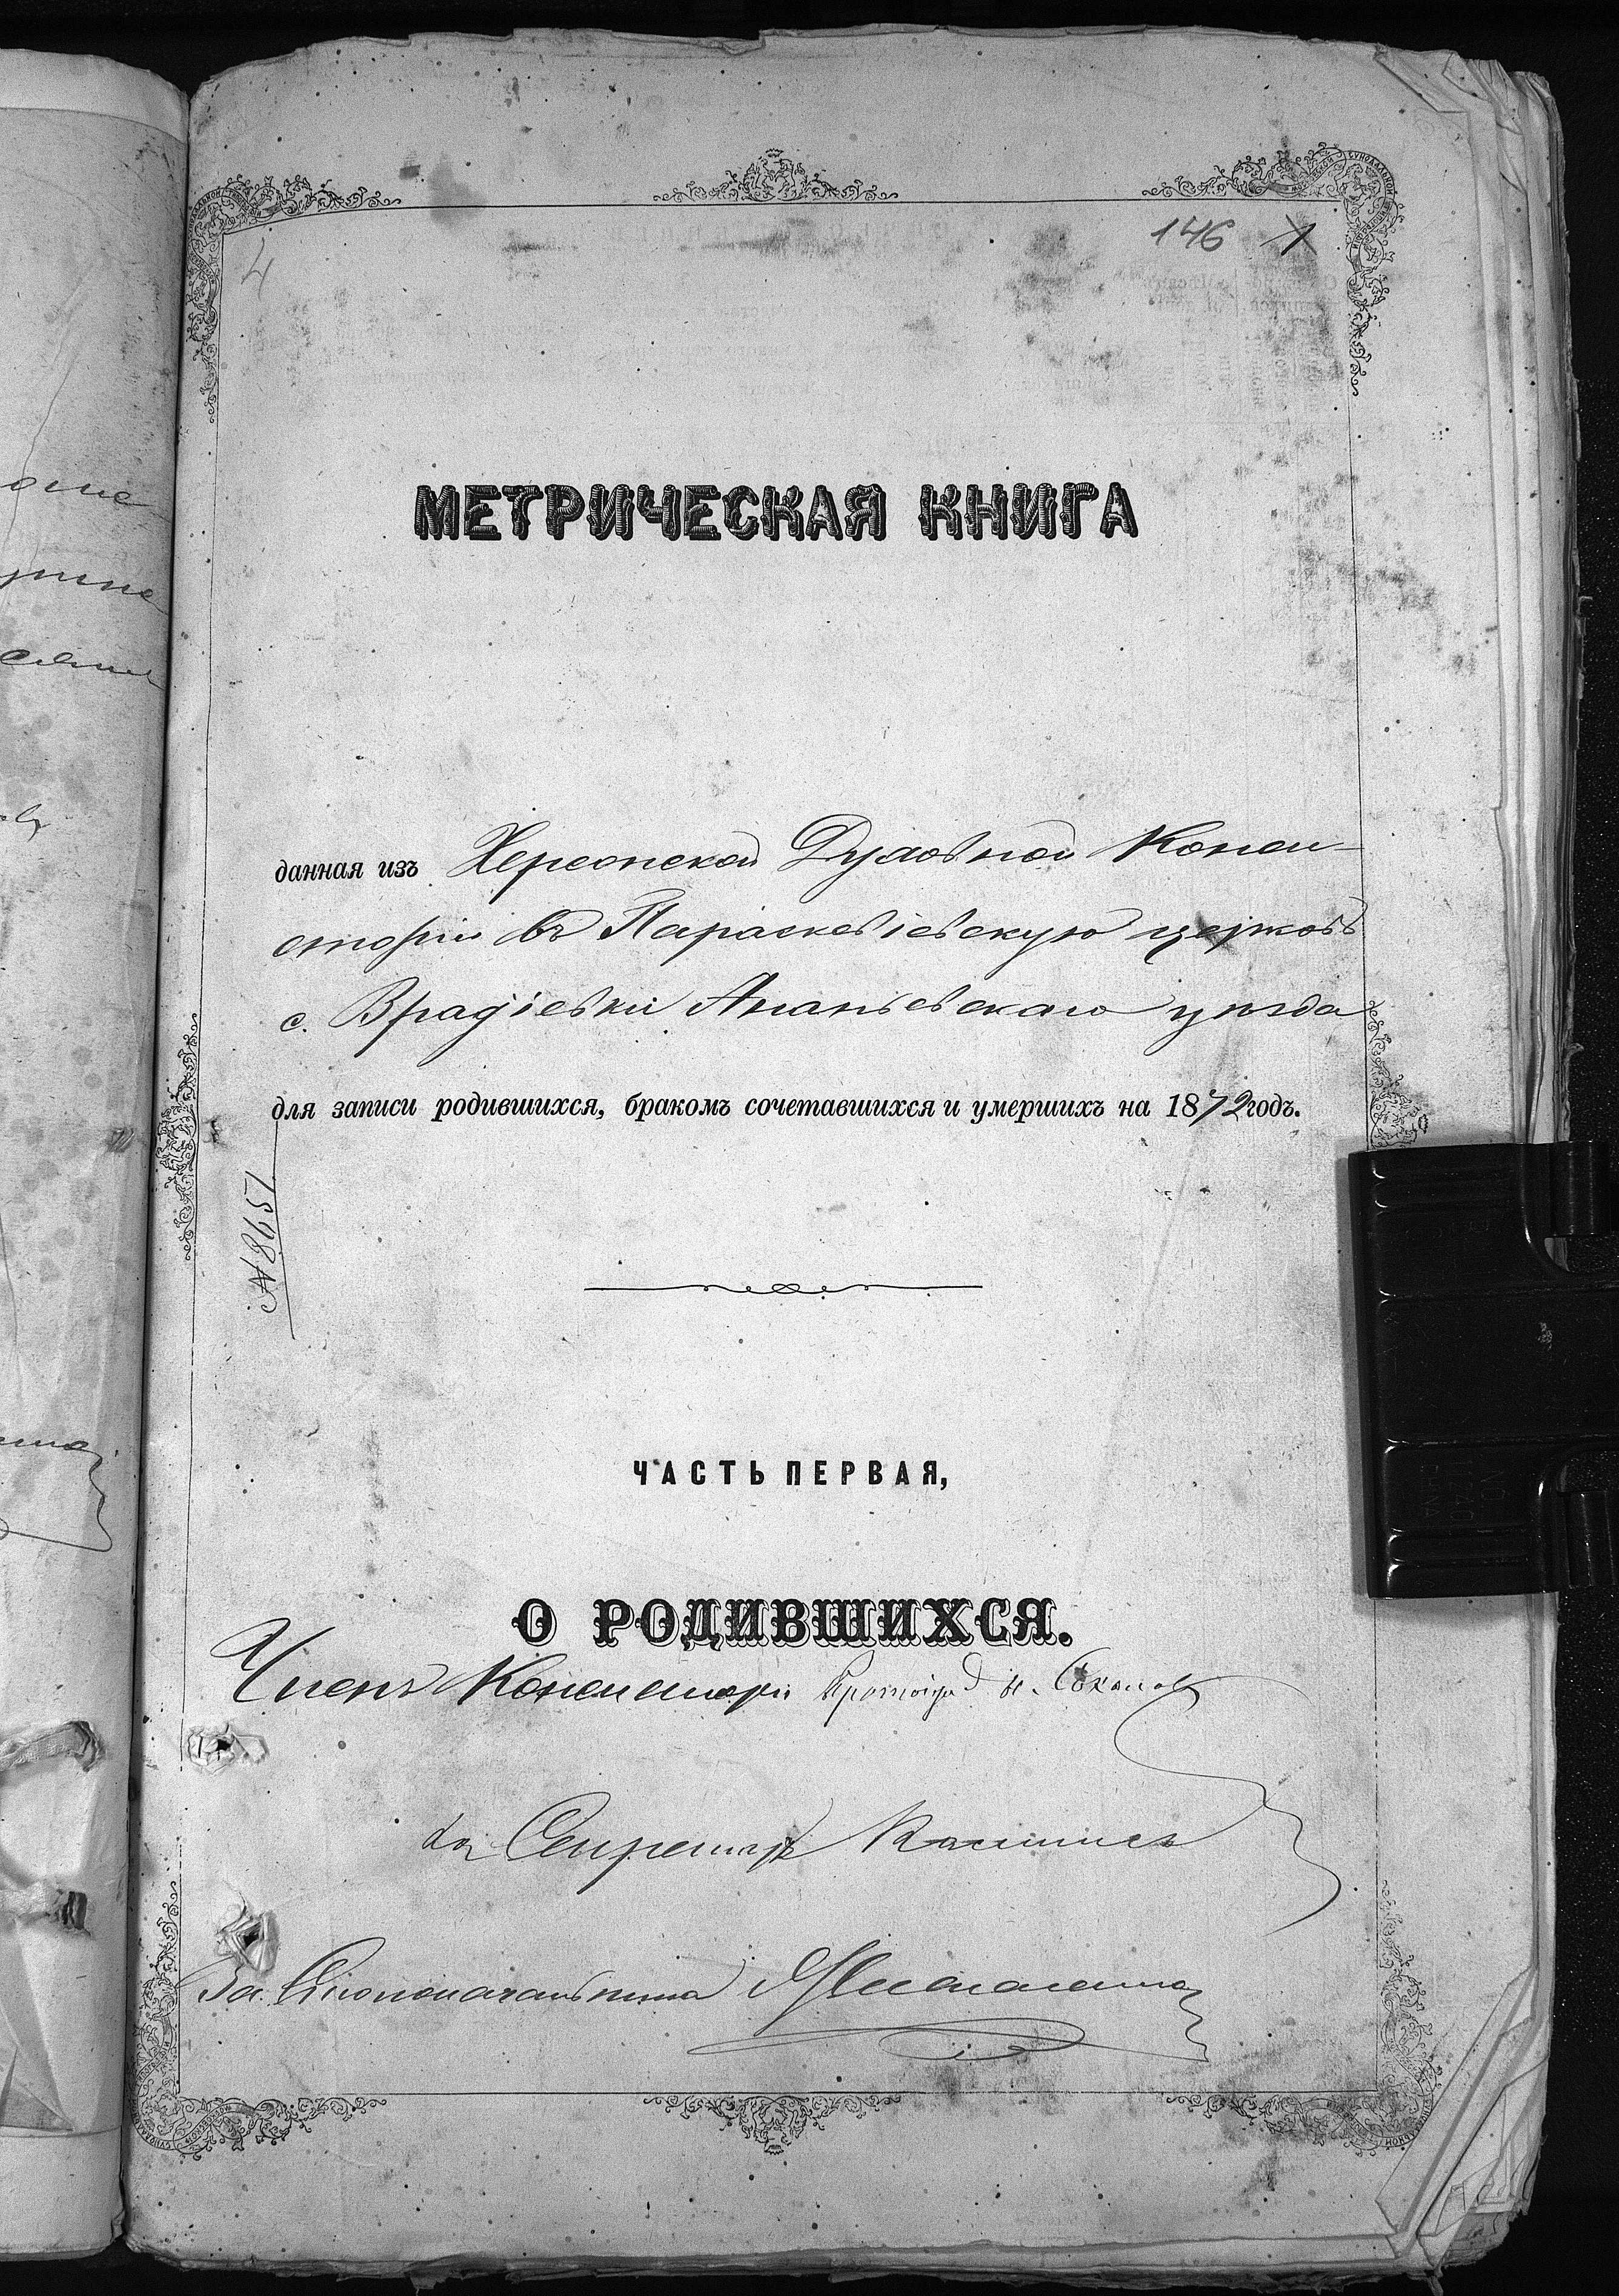 4
146 1
МЕТРИЧЕСКАЯ КНИГА
данная изъ Херсонской Духовной Конси-
сторіи въ Параскевіевскую церковь
с. Врадіевки Ананьевскаго уѣзда
для записи родившихся, бракомъ сочетавшихся и умершихъ на 1872 годъ.
№ 8651
ЧАСТЬ ПЕРВАЯ,
О РОДИВШИХСЯ.
Членъ Консисторіи Протоіер. Н. Соколовъ
Секретарь
За Столоначальника